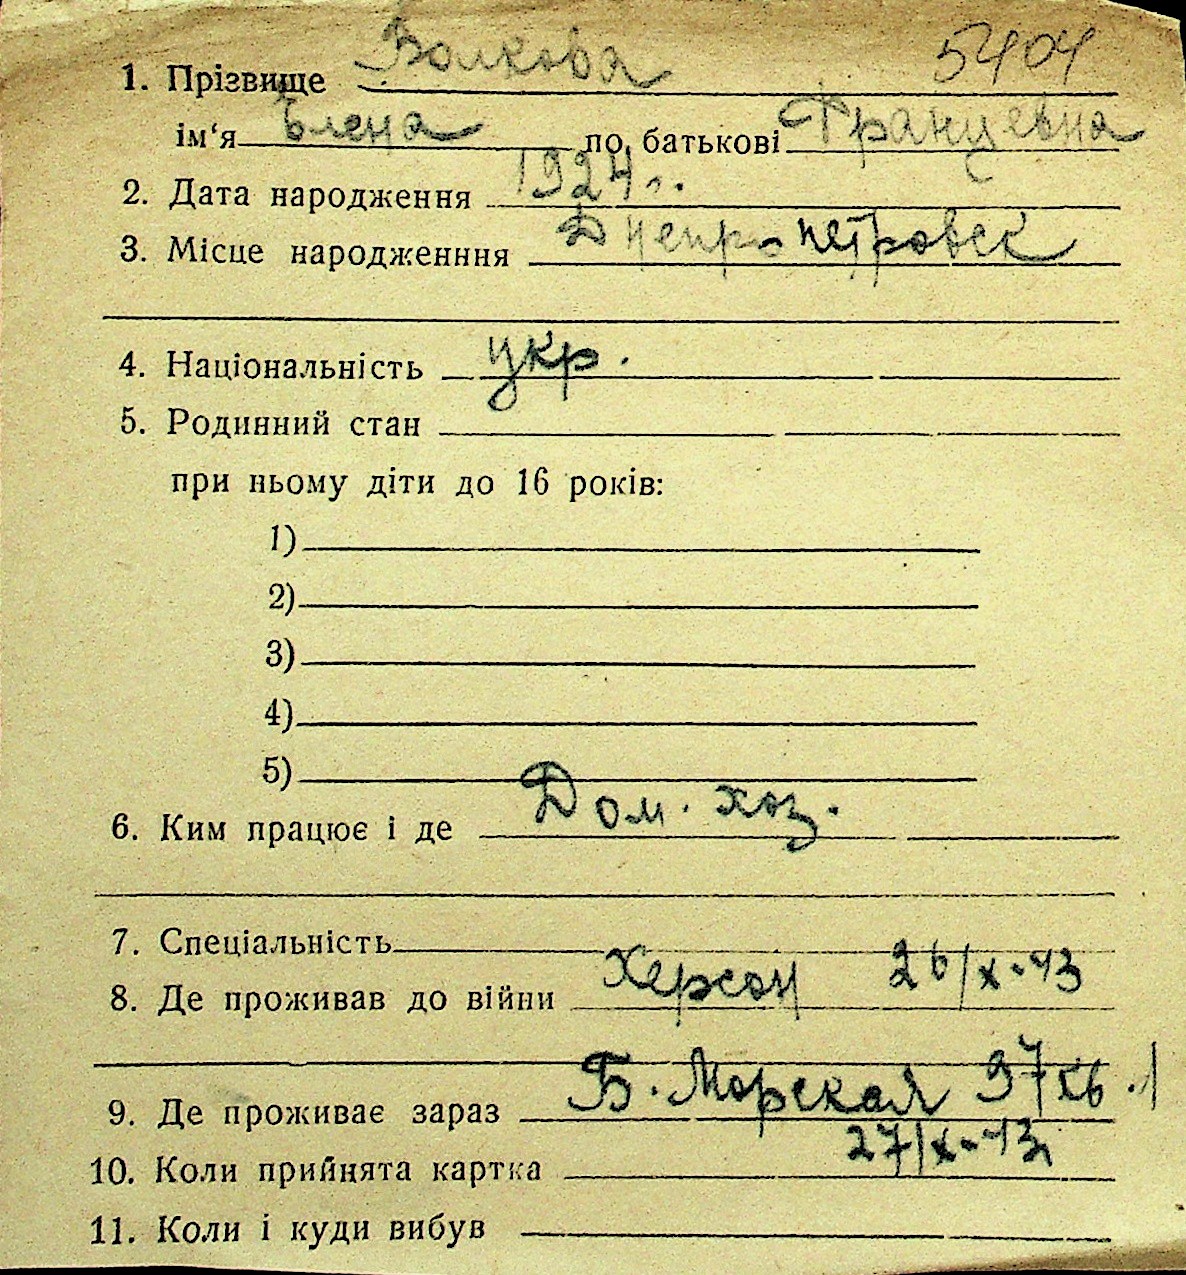 1. Прізвище Волкова 5404
ім‘я Елена по батькові Францевна
2. Дата народження 1924 г.
3. Місце народженння Днепропетровск
4. Національність укр.
5. Родинний стан
при ньому діти до 16 років:
1)
2)
3)
4)
5)
6. Ким працює і де Дом. хоз.
7. Спеціальність
8. Де проживав до війни Херсон 26/X-43
9. Де проживає зараз Б. Морская 37 кв. 1
10. Коли прийнята картка 27/X-43
11. Коли і куди вибув